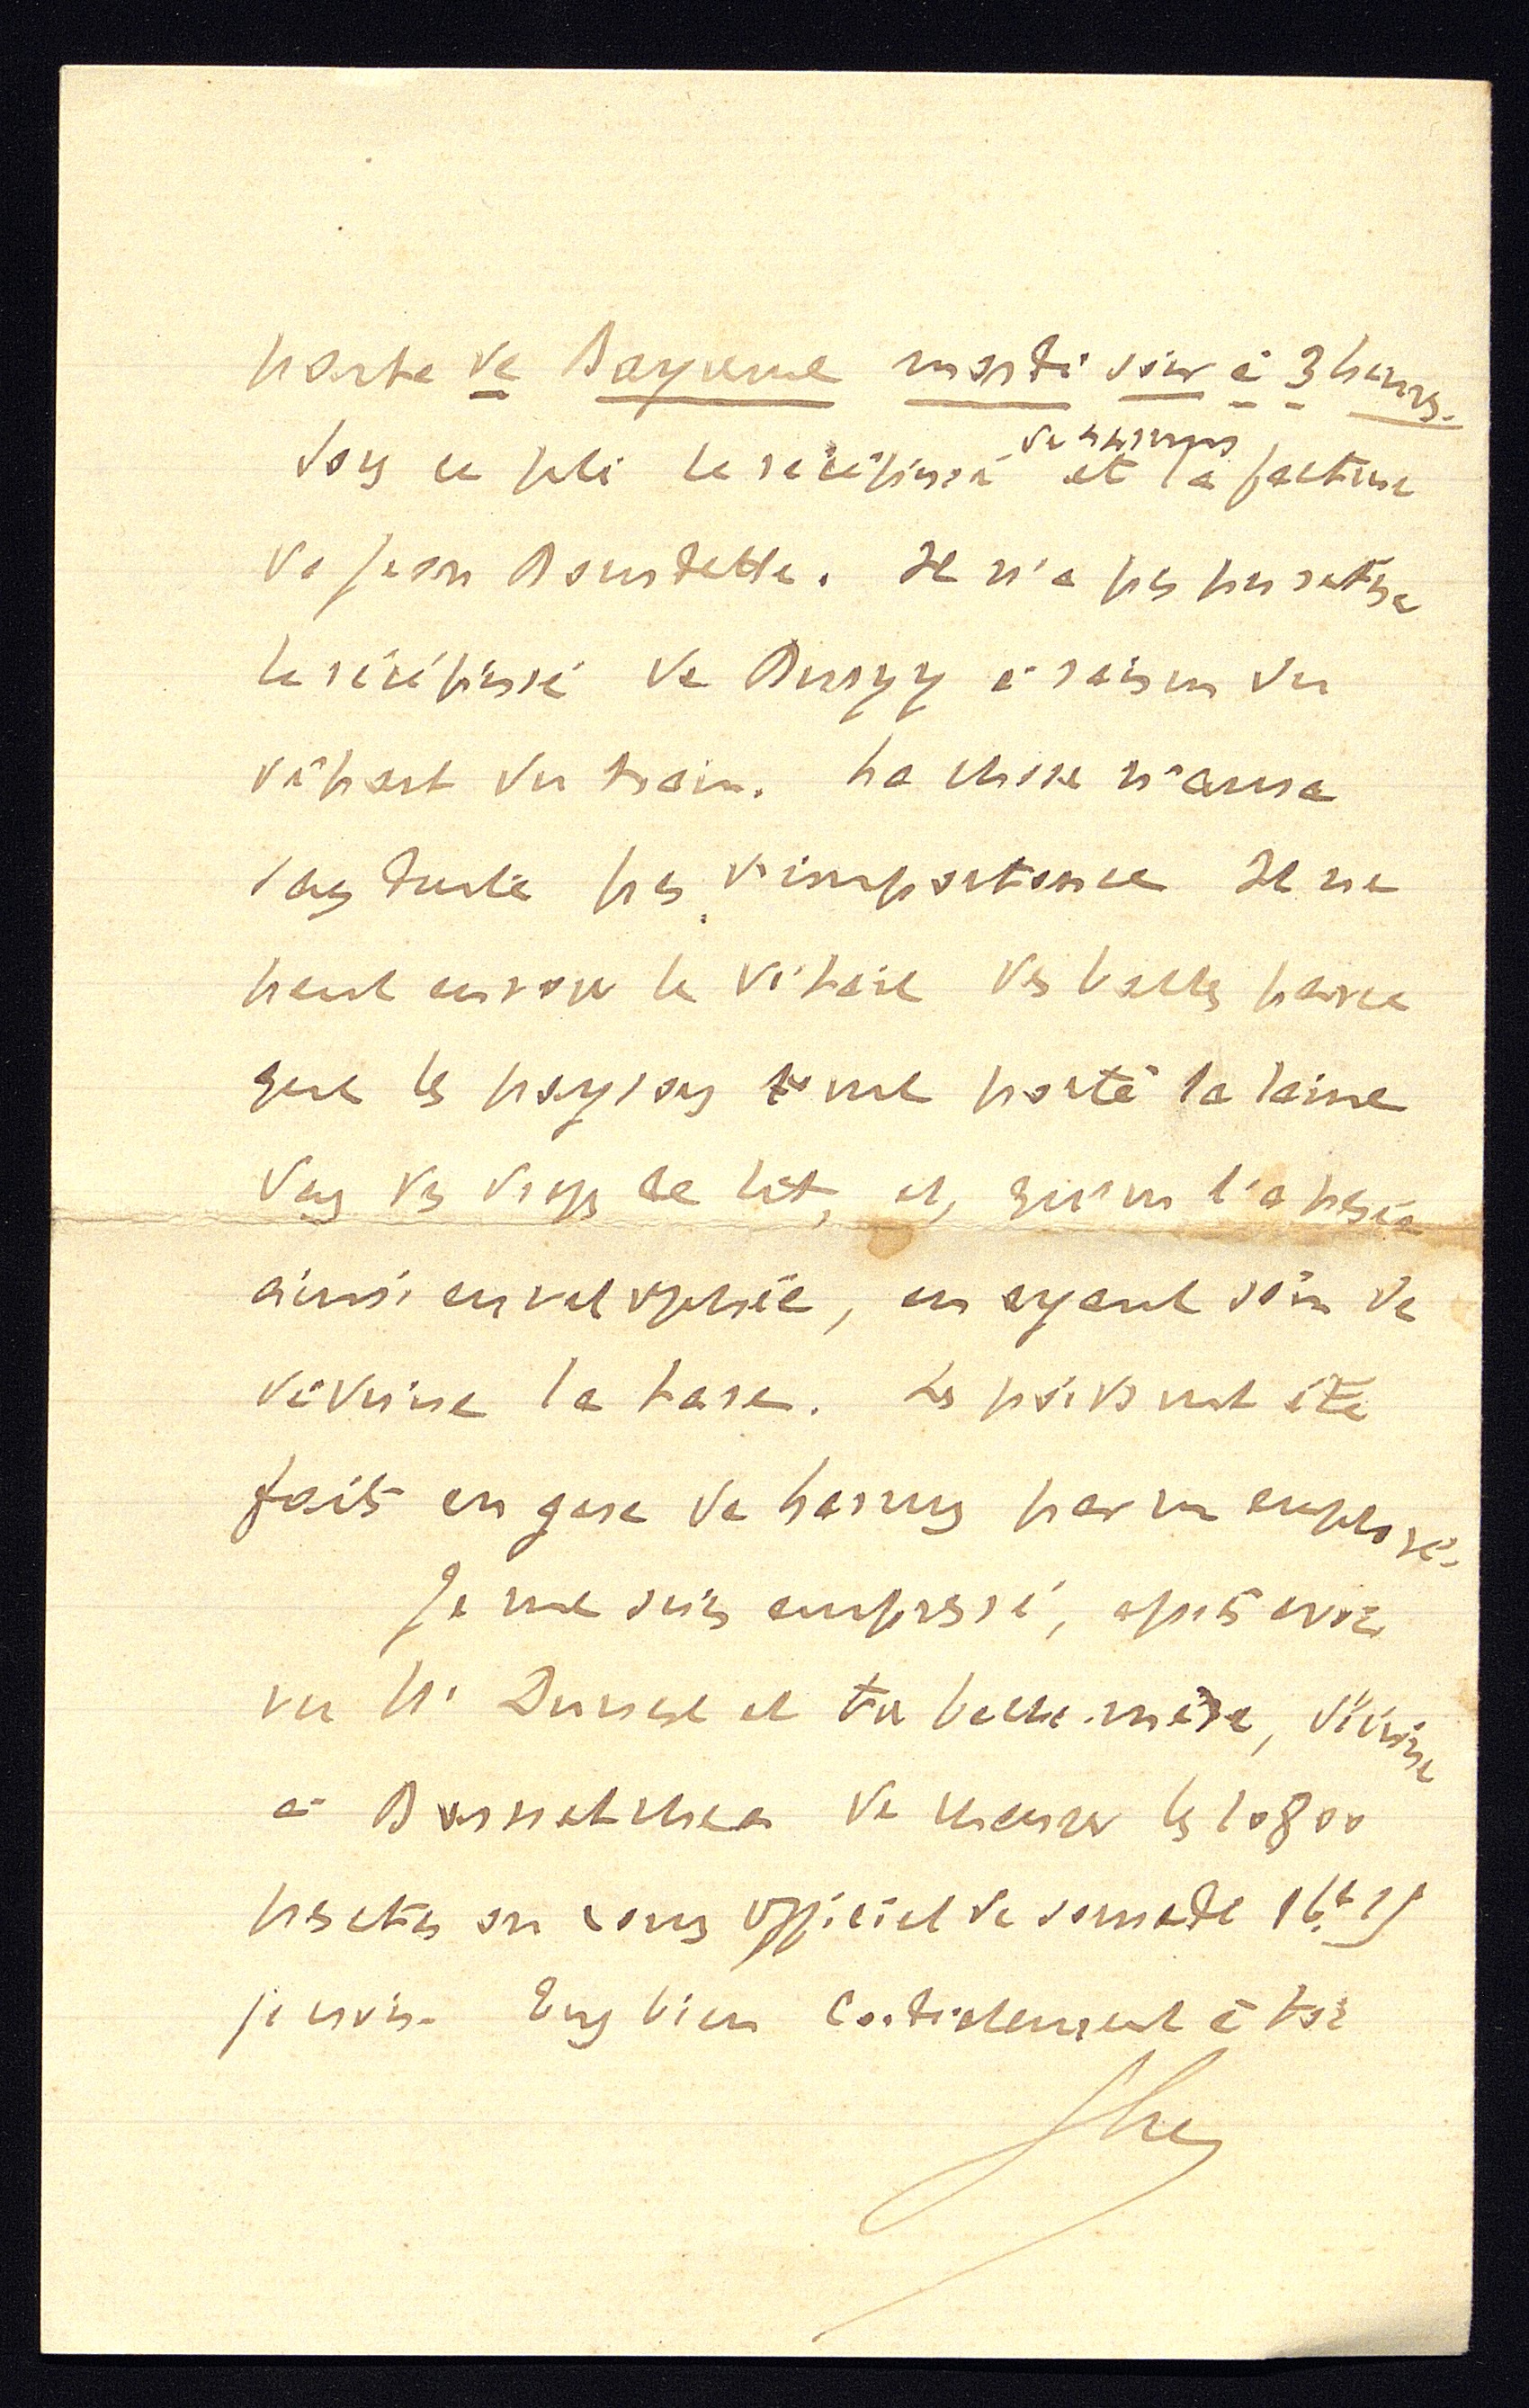 parte de Bayonne mardi soir à 3 heures.
de Larruns
Sous ce pli le récépissé et la facture
de Jean Bourdette. Il n'a pas pu retirer
le récépissé de Buzy à raison du
départ du train. La chose n'aura
sans doute pas d'importance Il ne
peut envoyer le détail des balles parce
que les paysans ont porté la laine
dans des draps de lit, et, qu'on l'a pesée
ainsi enveloppée, en ayant soin de
déduire la tare. Les poids ont été
faits en gare de Larruns par un employé.
Je me suis empressé, après avoir
vu Mr et ta belle-mère, d'écrire
à de changer les 10800
pesetas au cours officiel de samedi
je crois. Bien cordialement à toi